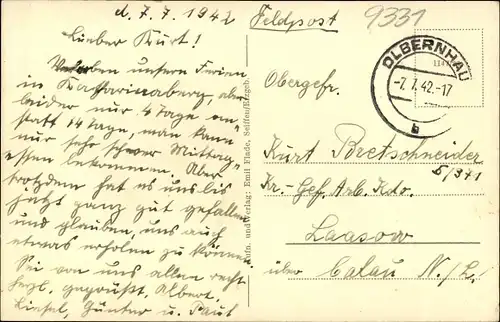 d. 7.7.1942
Feldpost
9331
Lieber Kurt!
Verleben unsere Ferien
in Katharinaberg, aber
leider nur 4 Tage an-
statt 14 Tage, man kann
nur sehr schwer Mittag-
essen bekommen. Aber
trotzdem hat es uns bis
jetzt ganz gut gefallen
und glauben, uns auch
etwas erholen zu können.
Sei von uns allen recht
herzl. gegrüßt, Albert,
Liesel, Günter u. Paul
Aufn. und Verlag: Emil Flade, Seiffen/Erzgeb.
OLBERNHAU
-7.7.42.-17
b
Obergefr.
Kurt Bretschneider
5/391
Kr.-Gef. Arb. Kdo.
Laasow
über Calau N./L.